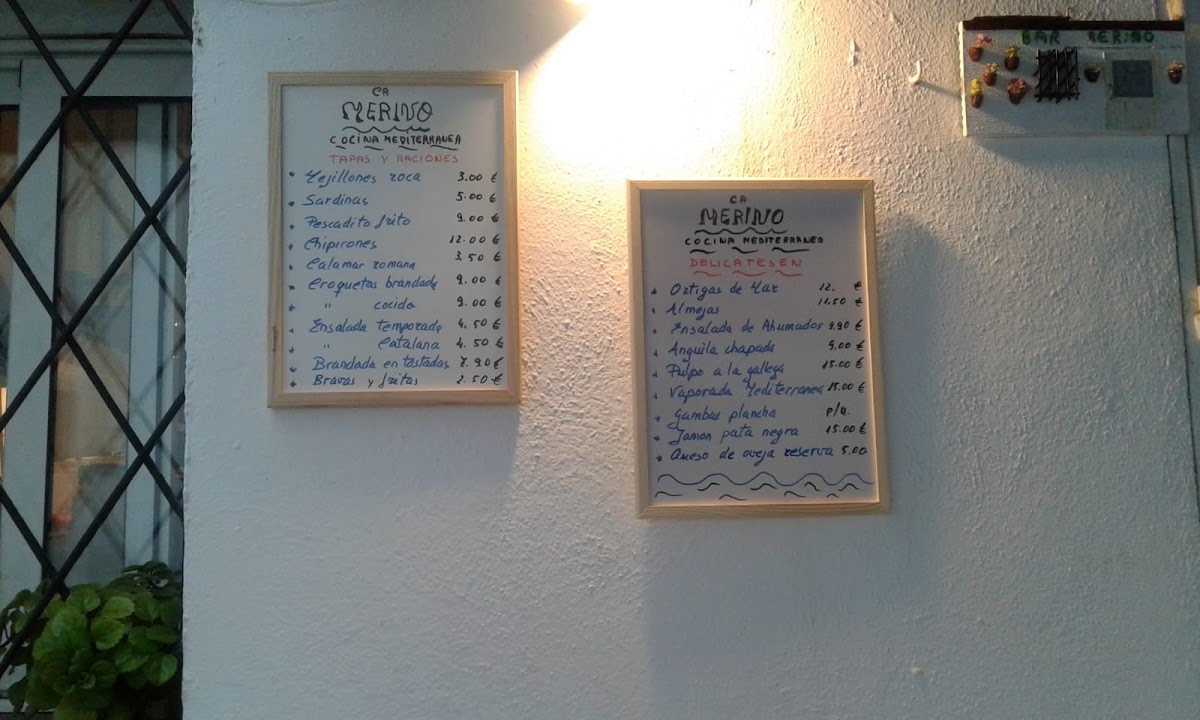 CA
MERINO
COCINA MEDITERRANEA
TAPAS Y RACIONES
Mejillones roca 3.00 €
Sardinas 5.00 €
Pescadito frito 9.00 €
Chipirones 12.00 €
Calamar romana 3.50 €
Croquetas brandade 9.00 €
" cocido 9.00 €
Ensalada temporada 4.50 €
" Catalana 4.50 €
Brandada en tostadas 7.90 €
Bravas y fritas 2.50 €
CA
MERINO
COCINA MEDITERRANEA
DELICATESEN
Ortigas de Mar 12. €
Almejas 11.50 €
Ensalada de Ahumados 9.90 €
Anguila chapada 9.00 €
Pulpo a la gallega 15.00 €
Vaporada Mediterranea 15.00 €
Gambas plancha p/u.
Jamon pata negra 15.00 €
Queso de oveja reserva 5.00
BAR MERINO